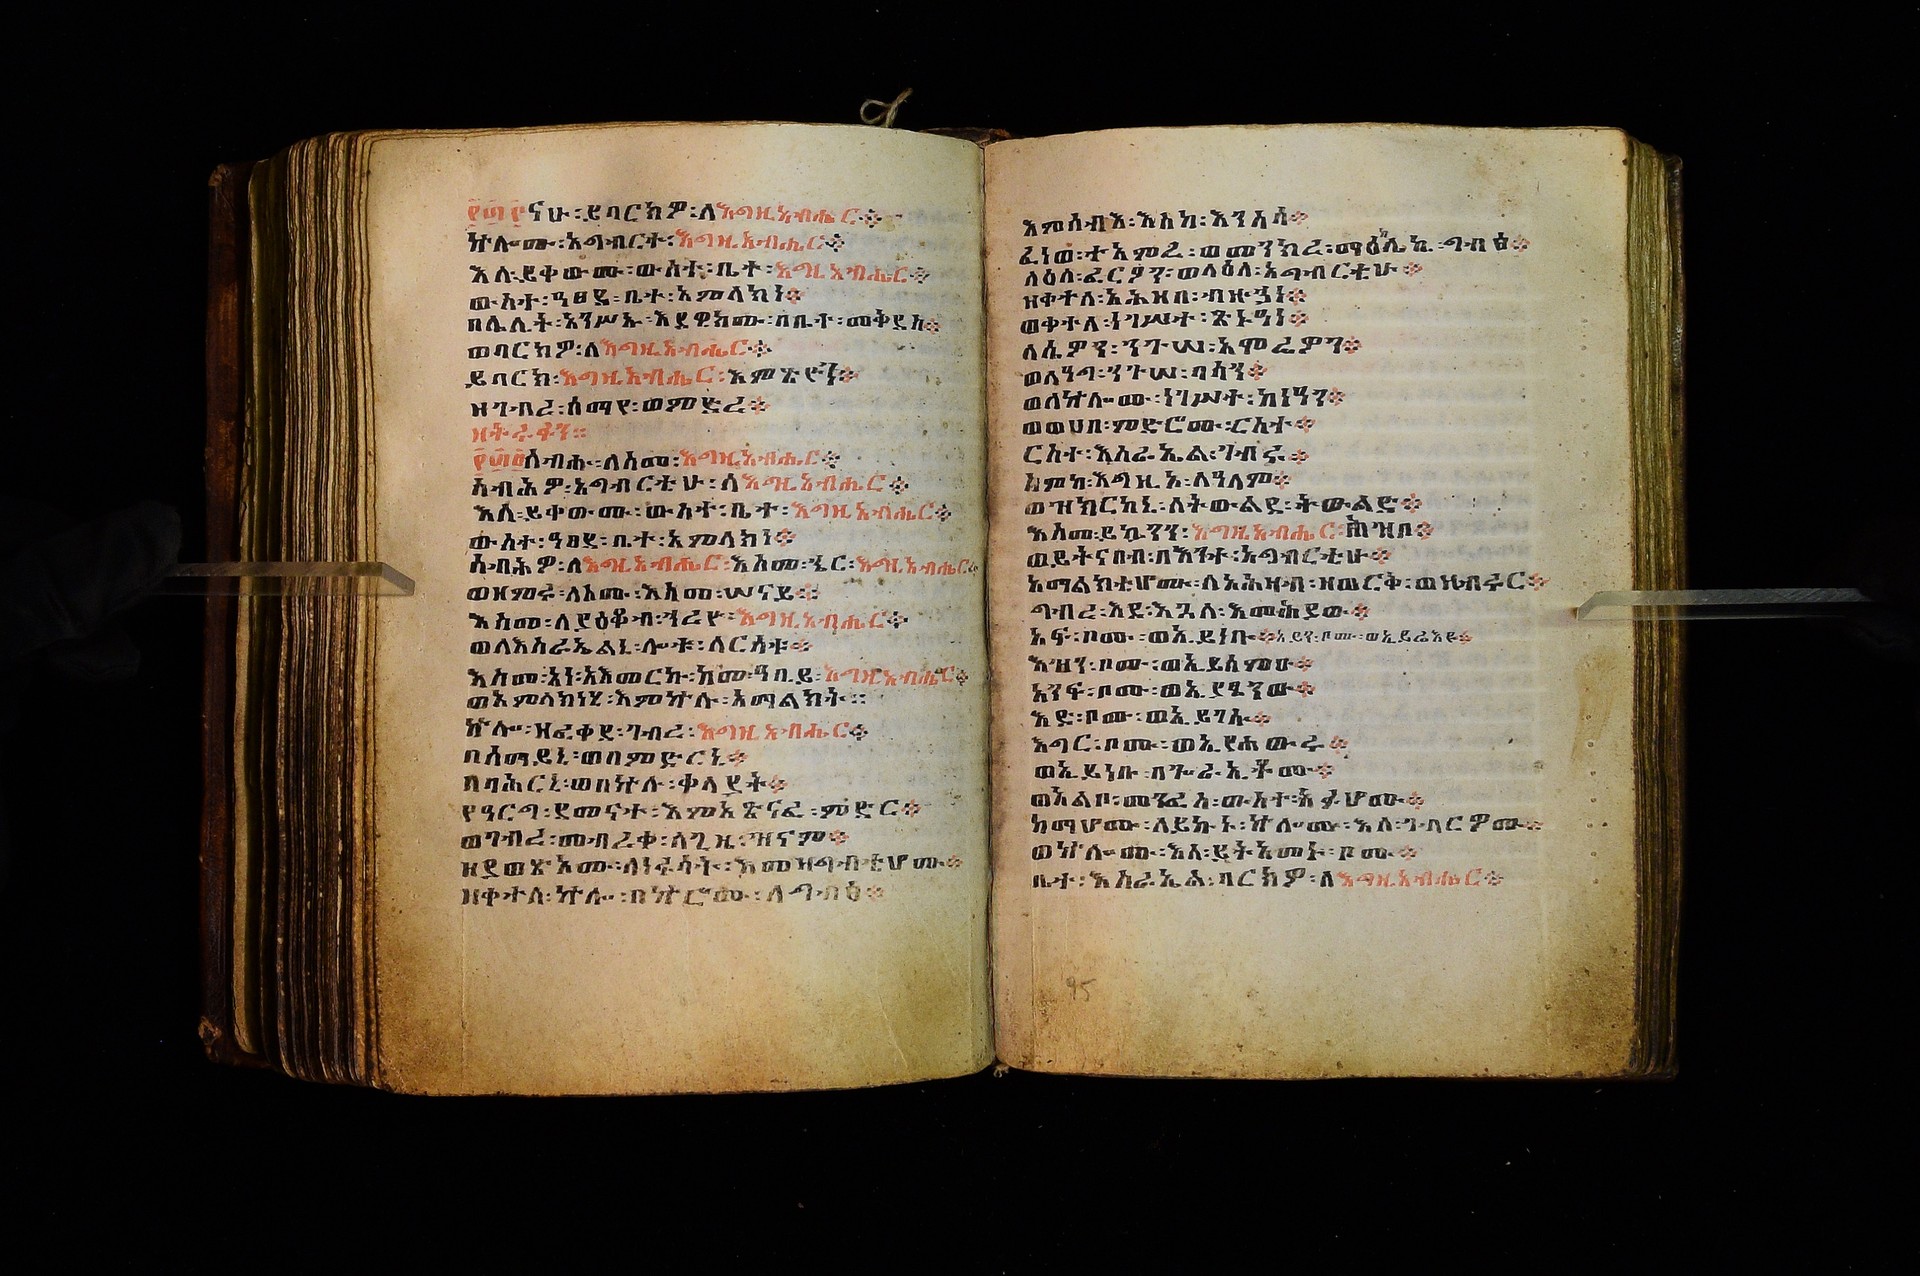 ፻፴፫ናሁ፡ይባርክዎ፡ለእግዚአብሔር፨
ኵሎሙ፡አግብርተ፡እግዚአብሔር፨
እለ፡ይቀውሙ፡ውስተ፡ቤተ፡እግዚአብሔር፨
ውስተ፡ዓፀደ፡ቤተ፡አምላክነ፨
በሌሊት፡አንሥኡ፡እደዊክሙ፡በቤተ፡መቅደስ፨
ወባርክዎ፡ለእግዚአብሔር፨
ይባርክ፡እግዚአብሔር፡እምጽዮን፨
ዘገብረ፡ሰማየ፡ወምድረ፨
ዘትሩፋን።
፻፴፬ሰብሑ፡ለስመ፡እግዚአብሔር፨
ሰብሕዎ፡አግብርቲሁ፡ለእግዚአብሔር፨
እለ፡ይቀውሙ፡ውስተ፡ቤተ፡እግዚአብሔር፨
ውስተ፡ዓፀደ፡ቤተ፡አምላክነ፨
ሰብሕዎ፡ለእግዚአብሔር፡እስመ፡ኄር፡እግዚአብሔር፨
ወዘምሩ፡ለስሙ፡እስመ፡ሠናይ፨
እስመ፡ለያዕቆብ፡ኀረዮ፡እግዚአብሔር፨
ወለእስራኤልኒ፡ሎቱ፡ለርስቱ፨
እስመ፡አነ፡አእመርኩ፡ከመ፡ዓቢይ፡እግዚአብሔር፨
ወአምላክነሂ፡እምኵሉ፡አማልክት።
ኵሎ፡ዘፈቀደ፡ገብረ፡እግዚአብሔር፨
በሰማይኒ፡ወበምድርኒ፨
በባሕርኒ፡ወበኵሉ፡ቀላያት፨
ያዓርግ፡ደመናተ፡እምአጽናፈ፡ምድር፨
ወገብረ፡መብረቀ፡ለጊዜ፡ዝናም፨
ዘያወጽኦሙ፡ለነፋሳት፡እመዛግብቲሆሙ፨
ዘቀተለ፡ኵሎ፡በኵሮሙ፡ለግብፅ፨
እምሰብእ፡እስከ፡እንስሳ፨
ፈነወ፡ተአምረ፡ወመንክረ፡ማዕከሌኪ፡ግብፅ፨
ላዕለ፡ፈርዖን፡ወላዕለ፡አግብርቲሁ፨
ዘቀተለ፡አሕዛበ፡ብዙኃነ፨
ወቀተለ፡ነገሥተ፡ጽኑዓነ፨
ለሴዎን፡ንጉሠ፡አሞሬዎን፨
ወለዓግ፡ንጉሠ፡ባሳን፨
ወለኵሎሙ፡ነገሥተ፡ከነዓን፨
ወወሀበ፡ምድሮሙ፡ርስተ፨
ርስተ፡እስራኤል፡ገብሩ፨
ስምከ፡እግዚኦ፡ለዓለም፨
ወዝክርከኒ፡ለትውልደ፡ትውልድ፨
እስመ፡ይኴንን፡እግዚአብሔር፡ሕዝበ፨
ወይትናበብ፡በእንተ፡አግብርቲሁ፨
አማልክቲሆሙ፡ለአሕዛብ፡ዘወርቅ፡ወዘብሩር፨
ግብረ፡እደ፡እጓለ፡እመሕያው፨
አፍ፡ቦሙ፡ወኢይነቡ፨አይን፡ቦሙ፡ወኢይሬእዩ፨
እዝን፡ቦሙ፡ወኢይሰምዑ፨
አንፍ፡ቦሙ፡ወኢያፄንው፨
እድ፡ቦሙ፡ወኢይገሱ፨
እግር፡ቦሙ፡ወኢየሐውሩ፨
ወኢይነቡ፡በጕራኢቶሙ፨
ወአልቦ፡መንፈስ፡ውስተ፡አፉሆሙ፨
ከማሆሙ፡ለይኩኑ፡ኵሎሙ፡እለ፡ገብርዎሙ፨
ወኵሎሙ፡እለ፡ይትአመኑ፡ቦሙ፨
ቤተ፡እስራኤል፡ባርክዎ፡ለእግዚአብሔር፨
95